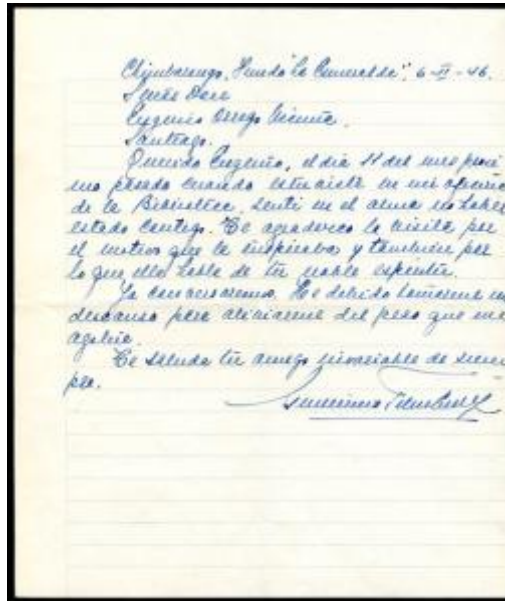 Chimbarongo, Fundo "La Esmeralda", 6-II-46.
Señor Don
Eugenio Orrego Vicuña.
Santiago.
Querido Eugenio, el día 11 del mes próxi
mo pasado cuando estuviste en mi oficina
de la Biblioteca, sentí en el alma no haber
estado contigo. Te agradezco la visita por
el motivo que la inspiraba y también por
lo que ello habla de tu noble espíritu.
Ya conversaremos. He debido tomarme un
descanso para aliviarme del peso que me
agobia.
Te saluda tu amigo invariable de siem
pre.